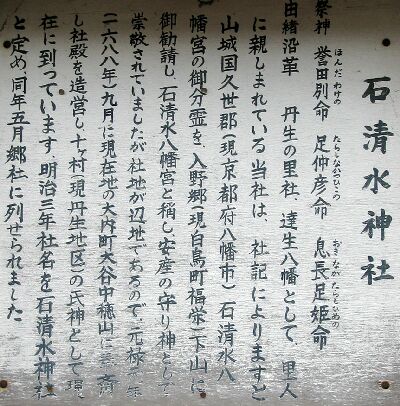 石清水神社
祭神 誉田別命 足仲彦命 息長足姫命
ほんだわけの たらしなかつひこの おきながたらしひめの
由緒沿革 丹生の里社、達生八幡として、里人
に親しまれている当社は、社記によりますと
山城国久世郡(現京都府八幡市)石清水八
幡宮の御分霊を、入野郷(現白鳥町福栄)下山に
御勧請し、石清水八幡宮と称し、安産の守り神として
崇敬されていましたが社地が辺地でわるので、元禄
一六八八年)九月に現在地の大内町大谷中穂山に
し社殿を造営し、十ヶ村(現丹生地区)の氏神として現
在に到っています。明治三年社名を石清水神社
と定め、同年五月郷社に列せられました